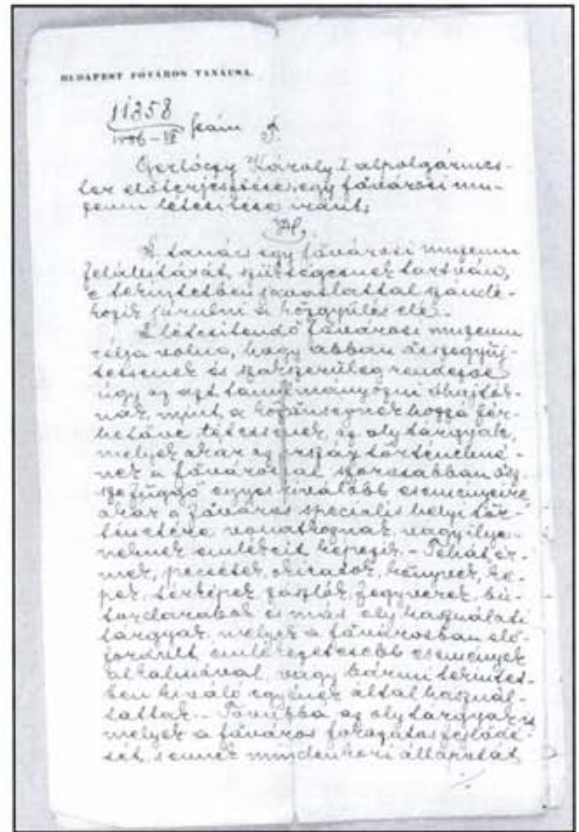 BUDAPEST FŐVÁROS TANÁCSA.
11258
1886-III szám
Gerlóczy Károly I alpolgármes-
ter előterjesztése egy fővárosi mu-
zeum létesitése iránt.
A tanács egy fővárosi muzeum
felállitását szükségesnek tartván,
e tekintetben javaslattal szándé-
kozik járulni a közgyülés elé.-
A létesitendő fővárosi muzeum
célja volna, hogy abban összegyüj-
tessenek és szakszerüleg rendezve
úgy az azt tanulmányozni óhajtók-
nak, mint a közönségnek hozzá fér-
hetővé tétessenek, az oly tárgyak,
melyek akár az ország történelmé-
nek a fővárossal szorosabban ösz-
szefüggő egyes kiválóbb eseményeire
akár a főváros speciális helyi tör-
ténetére vonatkoznak, vagy ilye-
neknek emlékeit képezik.- Tehát ér-
mek, pecsétek, okiratok, könyvek, ké-
pek, térképek, zászlók, fegyverek, bú-
tordarabok és más oly használati
tárgyak, melyek a fővárosban elő-
fordult emlékezetesebb események
alkalmával, vagy bármi tekintet-
ben kiváló egyének által használ-
tattak.- Továbbá az oly tárgyak is
melyek a főváros fokozatos fejlődé-
sét, s ennek mindenkori állapotát